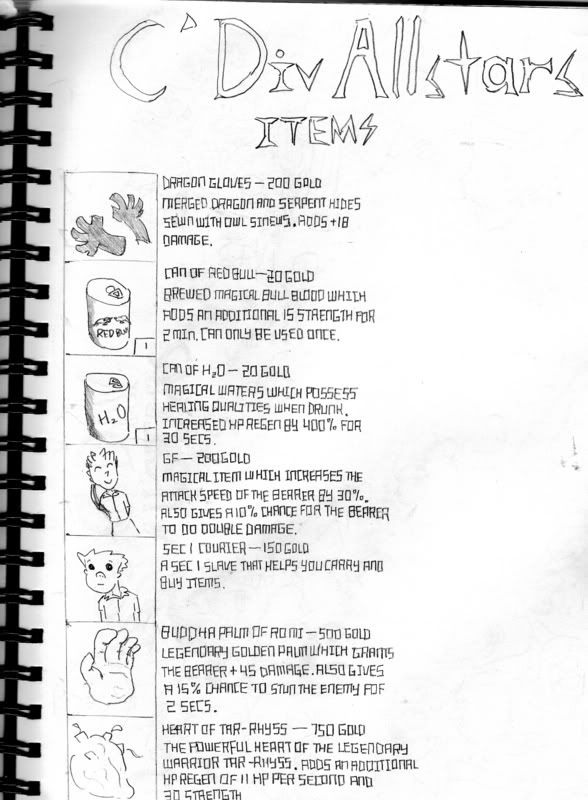 C' Div Allstars
ITEMS
DRAGON GLOVES — 200 GOLD
MERGED DRAGON AND SERPENT HIDES
SEWN WITH OWL SINEWS. ADDS +18
DAMAGE.
RED BULL
1
CAN OF RED BULL — 20 GOLD
BREWED MAGICAL BULL BLOOD WHICH
ADDS AN ADDITIONAL 15 STRENGTH FOR
2 MIN. CAN ONLY BE USED ONCE.
H₂O
1
CAN OF H₂O — 20 GOLD
MAGICAL WATERS WHICH POSSESS
HEALING QUALITIES WHEN DRUNK.
INCREASED HP REGEN BY 400% FOR
30 SECS.
GF — 200 GOLD
MAGICAL ITEM WHICH INCREASES THE
ATTACK SPEED OF THE BEARER BY 30%.
ALSO GIVES A 10% CHANCE FOR THE BEARER
TO DO DOUBLE DAMAGE.
SEC 1 COURIER — 150 GOLD
A SEC 1 SLAVE THAT HELPS YOU CARRY AND
BUY ITEMS.
BUDDHA PALM OF ROMI — 500 GOLD
LEGENDARY GOLDEN PALM WHICH GRANTS
THE BEARER + 45 DAMAGE. ALSO GIVES
A 15% CHANCE TO STUN THE ENEMY FOR
2 SECS.
HEART OF TAR-RHYSS — 750 GOLD
THE POWERFUL HEART OF THE LEGENDARY
WARRIOR TAR-RHYSS. ADDS AN ADDITIONAL
HP REGEN OF 11 HP PER SECOND AND
30 STRENGTH